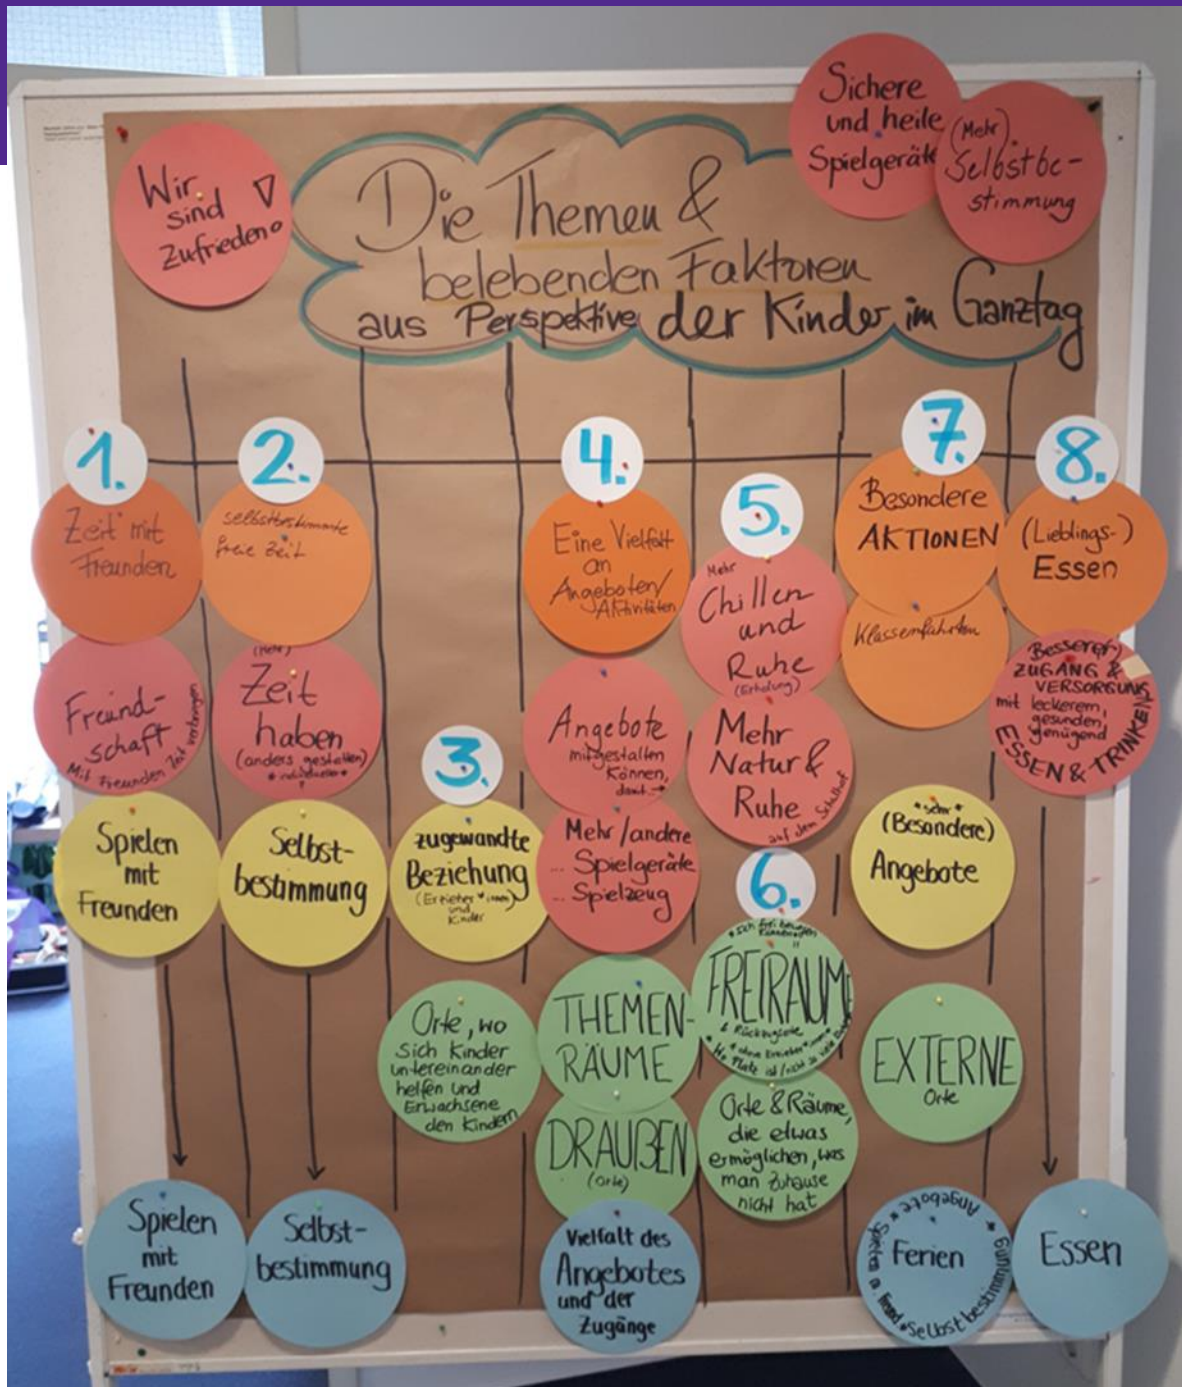 Wir
sind
Zufrieden!
Die Themen &
belebenden Faktoren
aus Perspektive der Kinder im Ganztag
Sichere
und heile
Spielgeräte
(Mehr)
Selbstbe-
stimmung
1.
Zeit mit
Freunden
Freund-
schaft
Mit Freunden Zeit verbringen
Spielen
mit
Freunden
Spielen
mit
Freunden
2.
selbstbestimmte
freie Zeit
(Mehr)
Zeit
haben
(anders gestalten)
* individueller *
Selbst-
bestimmung
Selbst-
bestimmung
3.
zugewandte
Beziehung
(Erzieher*innen)
und
Kinder
Orte, wo
sich Kinder
untereinander
helfen und
Erwachsene
den Kindern
4.
Eine Vielfalt
an
Angeboten/
Aktivitäten
Angebote
mitgestalten
können,
damit →
Mehr/andere
... Spielgeräte
... Spielzeug
THEMEN-
RÄUME
DRAUßEN
(Orte)
Vielfalt des
Angebotes
und der
Zugänge
5.
Mehr
Chillen
und
Ruhe
(Erholung)
Mehr
Natur &
Ruhe
auf dem Schulhof
6.
* sich frei bewegen
FREIRAUM
& Rückzugsorte
* ohne Erzieher*innen
* Wo Platz ist/nicht so viele
Orte & Räume,
die etwas
ermöglichen, was
man Zuhause
nicht hat
7.
Besondere
AKTIONEN
Klassenfahrten
(Besondere)
Angebote
EXTERNE
Orte
Ferien
* Spielen m. Freund. * Selbstbestimmung * Angebote
8.
(Lieblings-)
Essen
Besserer
ZUGANG &
VERSORGUNG
mit leckerem,
gesunden,
genügend
ESSEN & TRINKEN
Essen